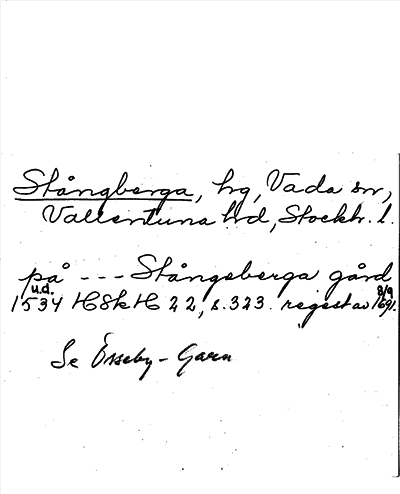 Stångberga, hg, Vada sn,
Vallentuna hd, Stockh. l.
på --- Stångsberga gård
u.d. 8/9
1534 HSkH 22, s. 323. regest av 1691.
Se Össeby-Garn